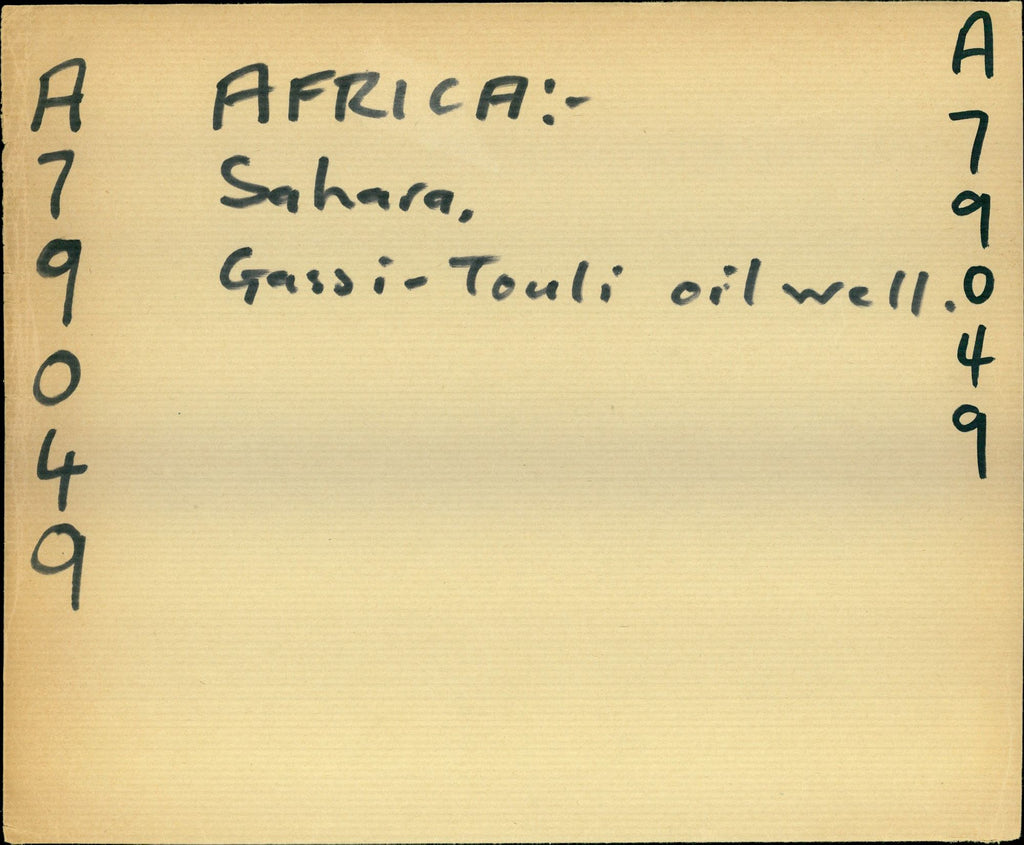 A
7
9
0
4
9
AFRICA:-
Sahara,
Gassi-Touli oil well.
A
7
9
0
4
9